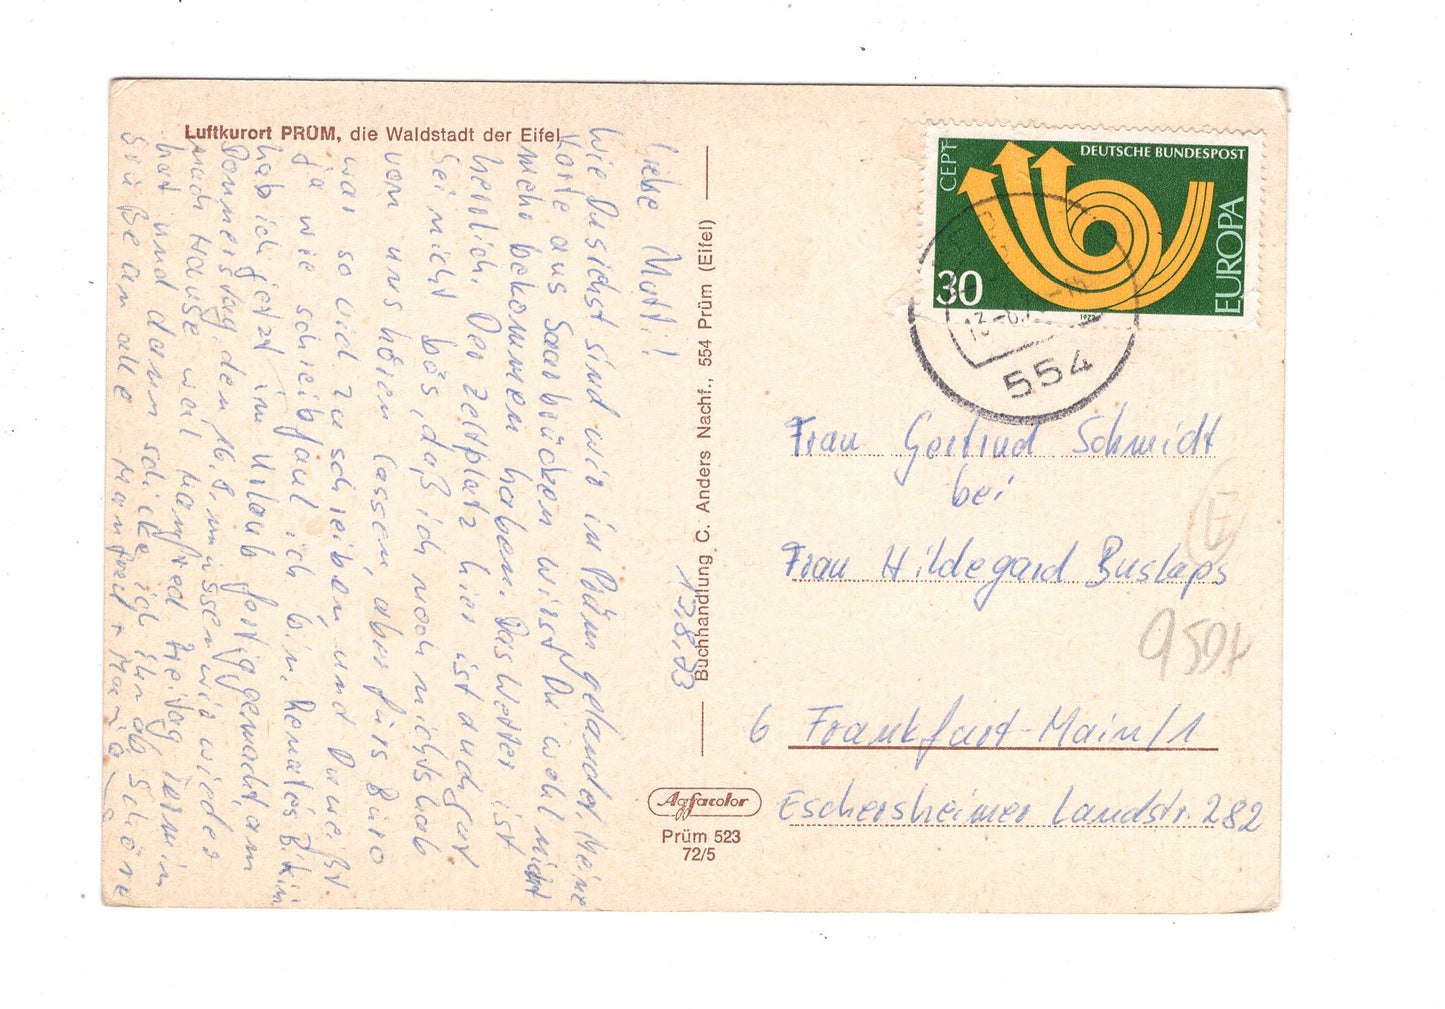 Luftkurort PRÜM, die Waldstadt der Eifel
13.8.73
Liebe Mutti!
Wie Du siehst sind wir in Prüm gelandet. Meine
Karte aus Saarbrücken wirst Du wohl nicht
mehr bekommen haben. Das Wetter ist
herrlich. Der Zeltplatz hier ist auch gut
Sei nicht bös, daß ich noch nichts hab
von uns hören lassen, aber fürs Büro
war so viel zu schreiben, und Du weißt
ja wie schreibfaul ich bin. Renates
hab ich jetzt im Urlaub fertiggemacht. am
Donnerstag, den 16.8. müssen wir wieder
nach Hause weil Manfred Freitag Termin
hat und dann schicke ich ihn ab Schöne
Grüße an alle Manfred + Maria
Buchhandlung C. Anders Nachf., 554 Prüm (Eifel)
Agfacolor
Prüm 523
72/5
CEPT
DEUTSCHE BUNDESPOST
EUROPA
30
1973
554
Frau Gertrud Schmidt
bei
Frau Hildegard Buslaps
6 Frankfurt-Main/1
Eschersheimer Landstr. 282